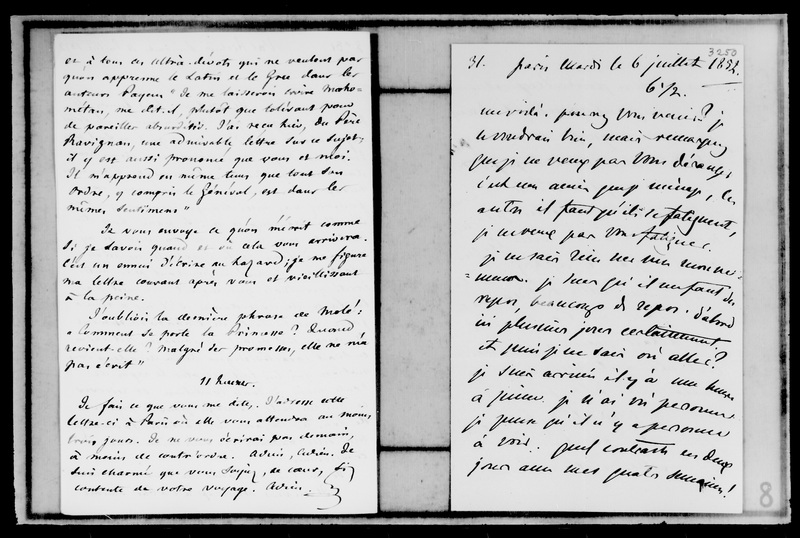 et à tous ces ultra-dévots qui ne veulent pas
qu'on apprenne le Latin et le Grec dans les
auteurs Payens "Je me laisserais croire maho-
métan, me dit-il, plutôt que tolérant pour
de pareilles absurdités. J'ai reçu hier, du Père
Ravignan, une admirable lettre sur ce sujet,
il y est aussi prononcé que vous et moi.
Il m'apprend en même tems que tout son
Ordre, y compris le Général, est dans les
mêmes sentimens"
Je vous envoye ce qu'on m'écrit comme
si je savois quand et où cela vous arrivera.
C'est un ennui d'écrire au hazard; je me figure
ma lettre courant après vous et vieillissant
à la peine.
J'oubliois la dernière phrase de Molé:
"Comment se porte la Princesse? Quand
revient-elle? Malgré ses promesses, elle ne m'a
pas écrit"
11 heures.
Je fais ce que vous me dites. J'adresse cette
lettre-ci à Paris où elle vous attendra au moins
trois jours. Je ne vous écrirai pas demain,
à moins de contr'ordre. Adieu, Adieu. Je
suis charmé que vous soyez, de cœur, si
contente de votre voyage. Adieu.
3250
31. Paris Mardi le 6 juillet 1852.
6 1/2.
me voilà. pourrez vous venir? je
le voudrais bien, mais remarquez
que je ne veux pas vous déranger,
c'est mon ami que je ménage, les
autres il faut qu'ils se fatiguent,
je ne veux pas vous fatiguer.
je ne sais rien sur mes mouve-
=mens. je sens qu'il me faut du
repos, beaucoup de repos. d'abord
ici plusieurs jours certainement
et puis je ne sais où aller?
je suis arrivée il y a une heure
à peine. je n'ai vu personne
je pense qu'il n'y a personne
à voir. quel contraste ces deux
jours avec mes quatre semaines!
8